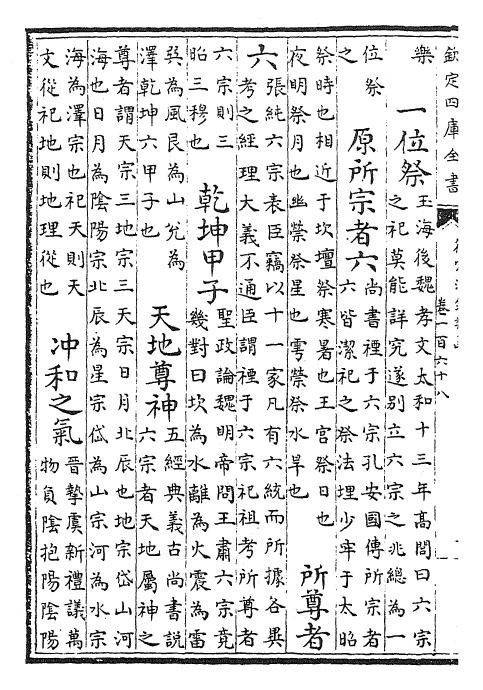 欽定四庫全書
卷一百六十八
樂
一位祭
玉海後魏孝文太和十三年高閭曰六宗
之祀莫能詳究遂别立六宗之兆總為一
位祭
之
原所宗者六
尚書禋于六宗孔安國傳所宗者
六皆潔祀之祭法埋少牢于太昭
祭時也相近于坎壇祭寒暑也王宫祭日也
夜明祭月也幽禜祭星也雩禜祭水旱也
所尊者
六
張純六宗表臣竊以十一家凡有六統而所據各異
考之經理大義不通臣謂禋于六宗祀祖考所尊者
六宗則三
昭三穆也
乾坤甲子
聖政論魏明帝問王肅六宗竟
幾對曰坎為水離為火震為雷
巽為風艮為山兊為
澤乾坤六甲子也
天地尊神
五經典義古尚書説
六宗者天地屬神之
尊者謂天宗三地宗三天宗日月北辰也地宗岱山河
海也日月為陰陽宗北辰為星宗岱為山宗河為水宗
海為澤宗也祀天則天
文從祀地則地理從也
冲和之氣
晉摯虞新禮議萬
物負陰抱陽陰陽